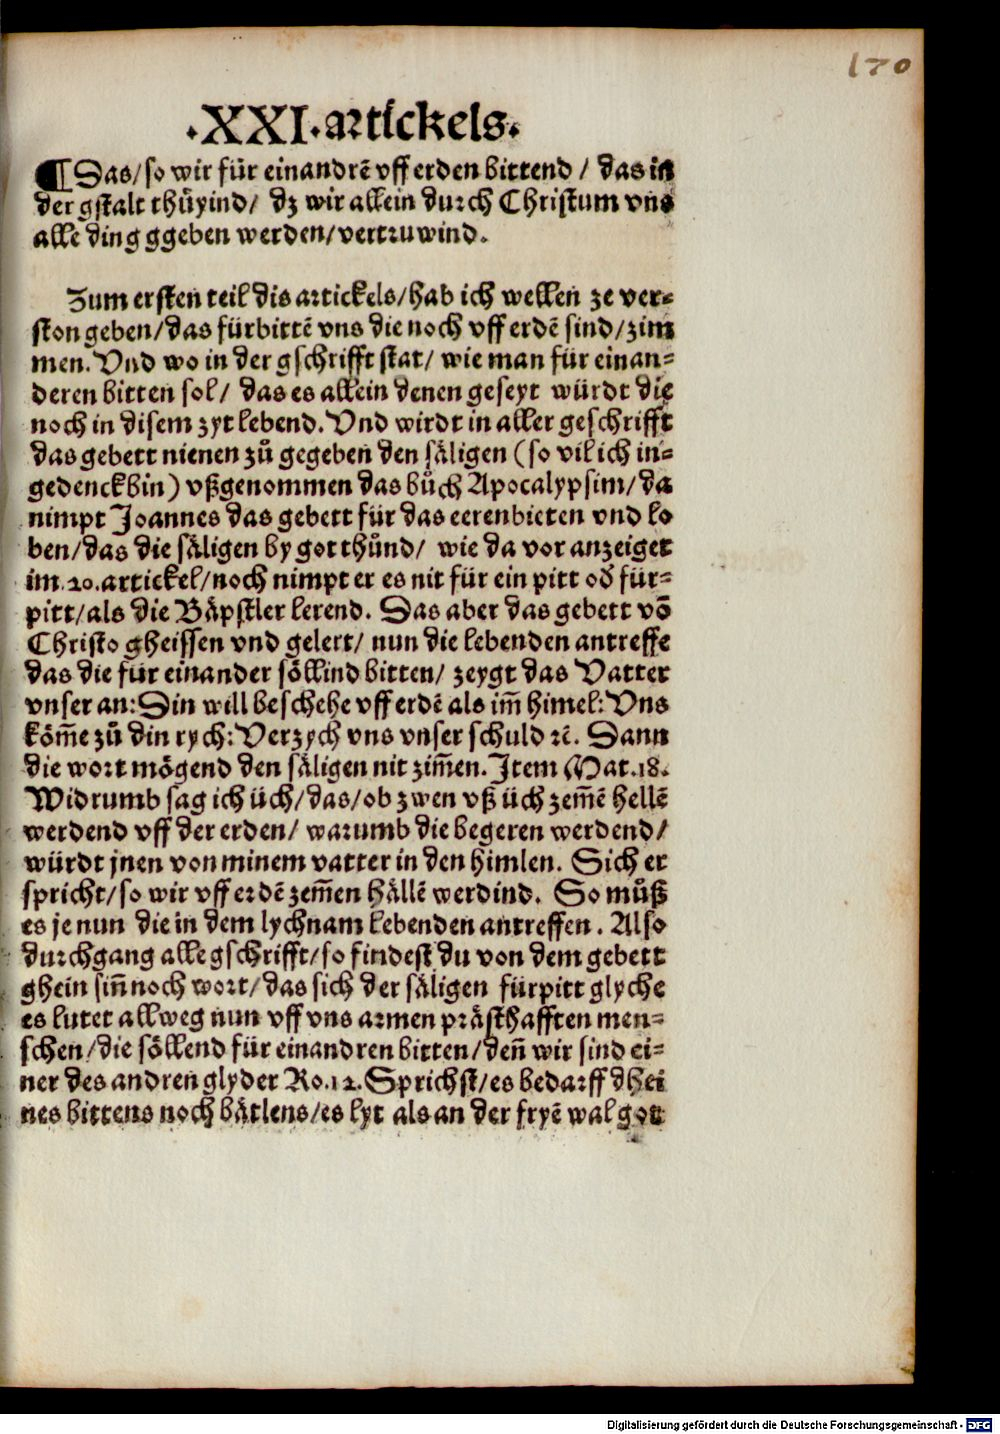 170
.XXI.artickels.
¶ Das/so wir für einandrē vff erden bittend / das in
der gstalt thüyind/ dz wir allein durch Christum vns
alle ding ggeben werden/vertruwind.
Zum ersten teil dis artickels/hab ich wellen ze ver⸗
ston geben/das fürbittē vns die noch vff erdē sind/zim
men. Vnd wo in der gschrifft stat/ wie man für einan⸗
deren bitten sol/ das es allein denen geseyt würdt die
noch in disem zyt lebend. Vnd wirdt in aller geschrifft
das gebett nienen zů gegeben den säligen (so vil ich in⸗
gedenck bin) vßgenommen das bůch Apocalypsim/da
nimpt Joannes das gebett für das eerenbieten vnd lo
ben/das die säligen by got thůnd/ wie da vor anzeiget
im.20.artickel/noch nimpt er es nit für ein pitt od für⸗
pitt/als die Bäpstler lerend. Das aber das gebett võ
Christo gheissen vnd gelert/ nun die lebenden antreffe
das die für einander söllind bitten/ zeygt das Vatter
vnser an: Din will beschehe vff erdē als im̄ himel: Vns
köm̄e zů din rych: Verzych vns vnser schuld ꝛc̄. Dann
die wort mögend den säligen nit zim̄en. Item Mat.18.
Widrumb sag ich üch/das/ob zwen vß üch zem̄ē hellē
werdend vff der erden/ warumb die begeren werdend/
würdt jnen von minem vatter in den himlen. Sich er
spricht/so wir vff erdē zem̄en hällē werdind. So můß
es je nun die in dem lychnam lebenden antreffen. Also
durchgang alle gschrifft/so findest du von dem gebett
ghein sin̄ noch wort/das sich der säligen fürpitt glyche
es lutet allweg nun vff vns armen prästhafften men⸗
schen/die söllend für einandren bitten/den̄ wir sind ei⸗
ner des andren glyder Ro.12. Sprichst/es bedarff dhei
nes bittens noch bätlens/es lyt als an der fryē wal got
Digitalisierung gefördert durch die Deutsche Forschungsgemeinschaft - DFG